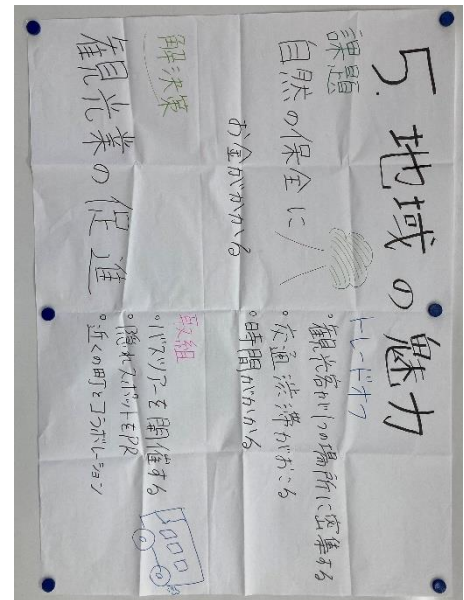 5. 地域の魅力
課題
自然の保全に
お金がかかる
解決策
観光業の促進
トレードオフ
・観光客が1つの場所に密集する
・交通渋滞がおこる
・時間がかかる
取組
・バスツアーを開催する
・隠れスポットをPR
・近くの町とコラボレーション